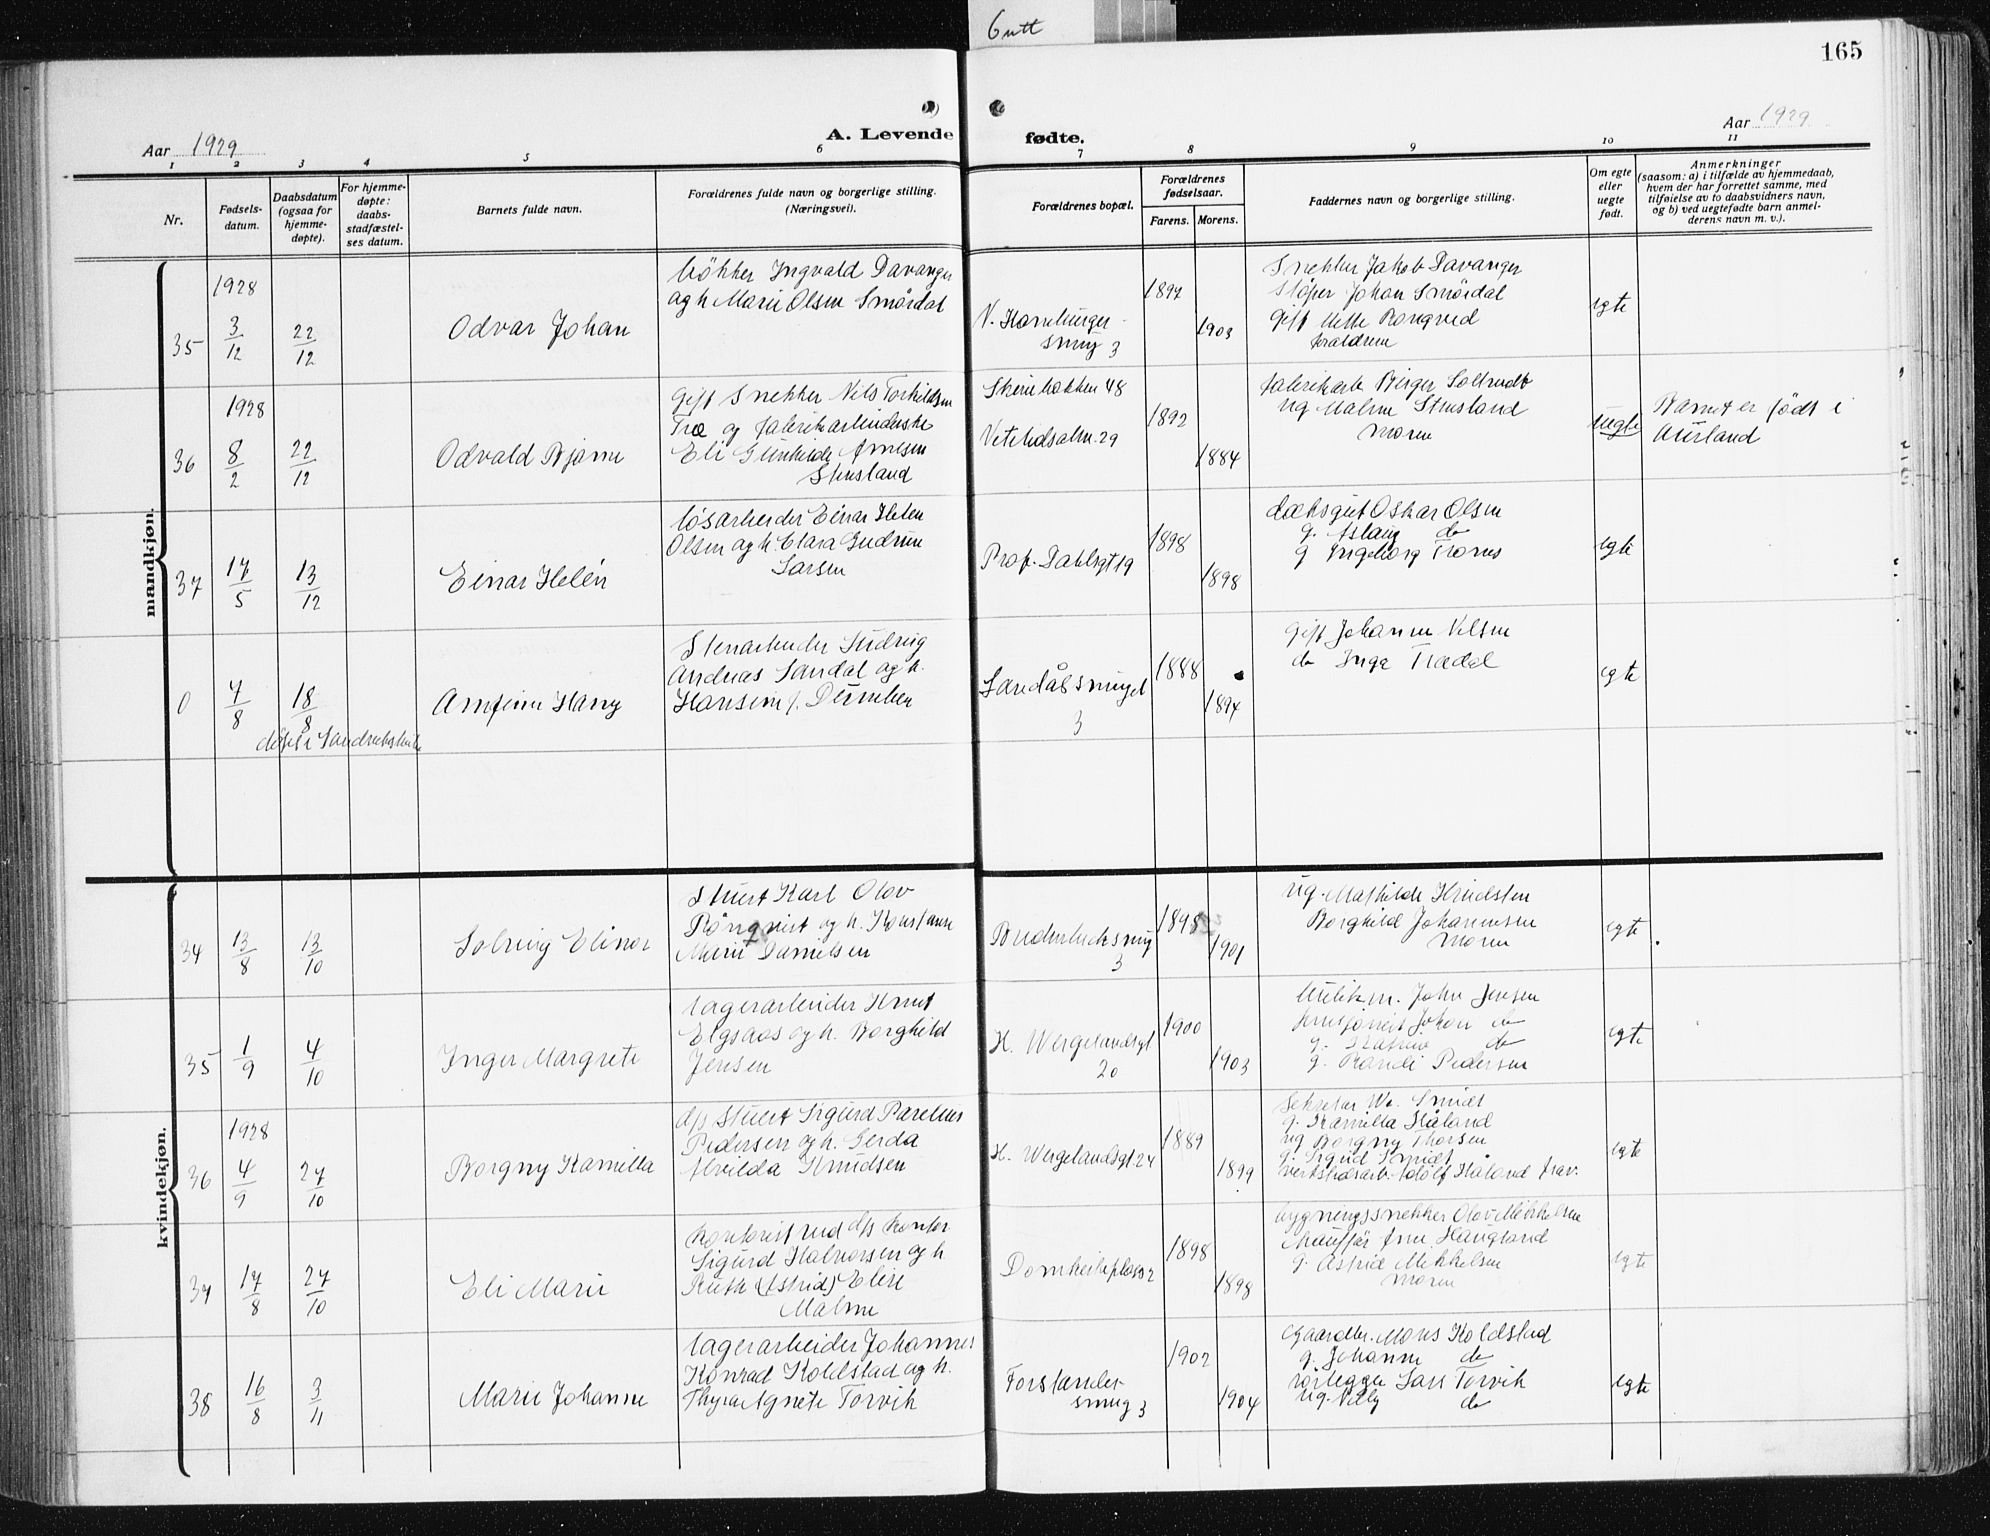 6 utt
165
Aar 1929
A. Levende
fødte.
Aar 1929
1 2 3 4 5 6 7 8 9 10 11
Nr.
Fødsels-
datum.
Daabsdatum
(ogsaa for
hjemme-
døpte).
For hjemme-
døpte:
daabs-
stadfæstel-
ses datum.
Barnets fulde navn.
Forældrenes fulde navn og borgerlige stilling.
(Næringsvei).
Forældrenes bopæl.
Forældrenes
fødselsaar.
Farens. Morens.
Faddernes navn og borgerlige stilling.
Om egte
eller
uegte
født.
Anmerkninger
(saasom: a) i tilfælde av hjemmedaab,
hvem der har forrettet samme, med
tilføielse av to daabsvidners navn,
og b) ved uegtefødte barn anmel-
derens navn m. v.).
mandkjøn.
35
1928
3/12
22/12
Odvar Johan
bökker Ingvald Davanger
og h. Marie Olsen Smördal
N. Hamburger-
smug 3
1897
1903
Snekker Jakob Davanger
støper Johan Smördal
gift Mette Rongved
forældrene
egte
36
1928
8/2
22/12
Odvald Bjarne
Gift Snekker Nils Torkildsen
Træ og fabrikarbeiderske
Eli Gunhilde Arnesen
Stensland
Skivebakken 48
Vetrlidsalm. 29
1892
1884
fabrikarb Birger
ug Malene Stensland
moren
uegte
Barnet er født i
Aurland
37
17/5
13/12
Einar Helén
løsarbeider Einar Helen
Olsen og h. Clara Gudrun
Larsen
Prof. Dahlsgt 19
1898
1898
dæksgut Oskar Olsen
g. Aslaug do
g Ingeborg
egte
0
7/8
18/8
døpt i Sandvikskirke
Arnfinn Harry
Stenarbeider Ludvig
Andreas Sandal og h.
Hansine f.
Sandålssmuget
3
1888
1894
Gift Johanne Nilsen
do Inga Trædal
egte
kvindekjøn.
34
13/8
13/10
Solveig Elinor
Stuert Karl Olov
Rönqvist og h. Konstanse
Marie Danielsen
Buderbuksmug
3
1898
1901
ug. Mathilde Knudsen
Borghild Johannessen
moren
egte
35
1/9
4/10
Inger Margrete
lagerarbeider Knut
Elgsaas og h. Borghild
Jensen
H. Wergelandsgt
20
1900
1903
butikm. John Jensen
Johan do
g. Katrine do
g. Randi Pedersen
egte
36
1928
4/9
27/10
Borgny Kamilla
d/s Stuert Sigurd Parelius
Pedersen og h. Gerda
Alvilda Knudsen
H. Wergelandsgt 24
1889
1899
Sekretær Smidt
g. Kamilla Håland
ug Borgny Thorsen
g. Sigrid Smidt
verkstedsarb. Adolf Håland frav.
egte
37
17/8
27/10
Eli Marie
kontorist ved d/s kontor
Sigurd Halvorsen og h
Ruth (Astrid) Elise
Malme
Domkirkeplass 2
1898
1898
bygningssnekker Olov Mikkelsen
Chauffør Arne Haugland
g. Astrid Mikkelsen
moren
egte
38
16/8
3/11
Marie Johanne
lagerarbeider Johannes
Konrad Koldstad og h.
Thyra Agnete Torvik
Forstander
smug 3
1902
1904
gaardbr. Mons Koldstad
g. Johanne do
rørlegger Lars Torvik
ug. Villy do
egte